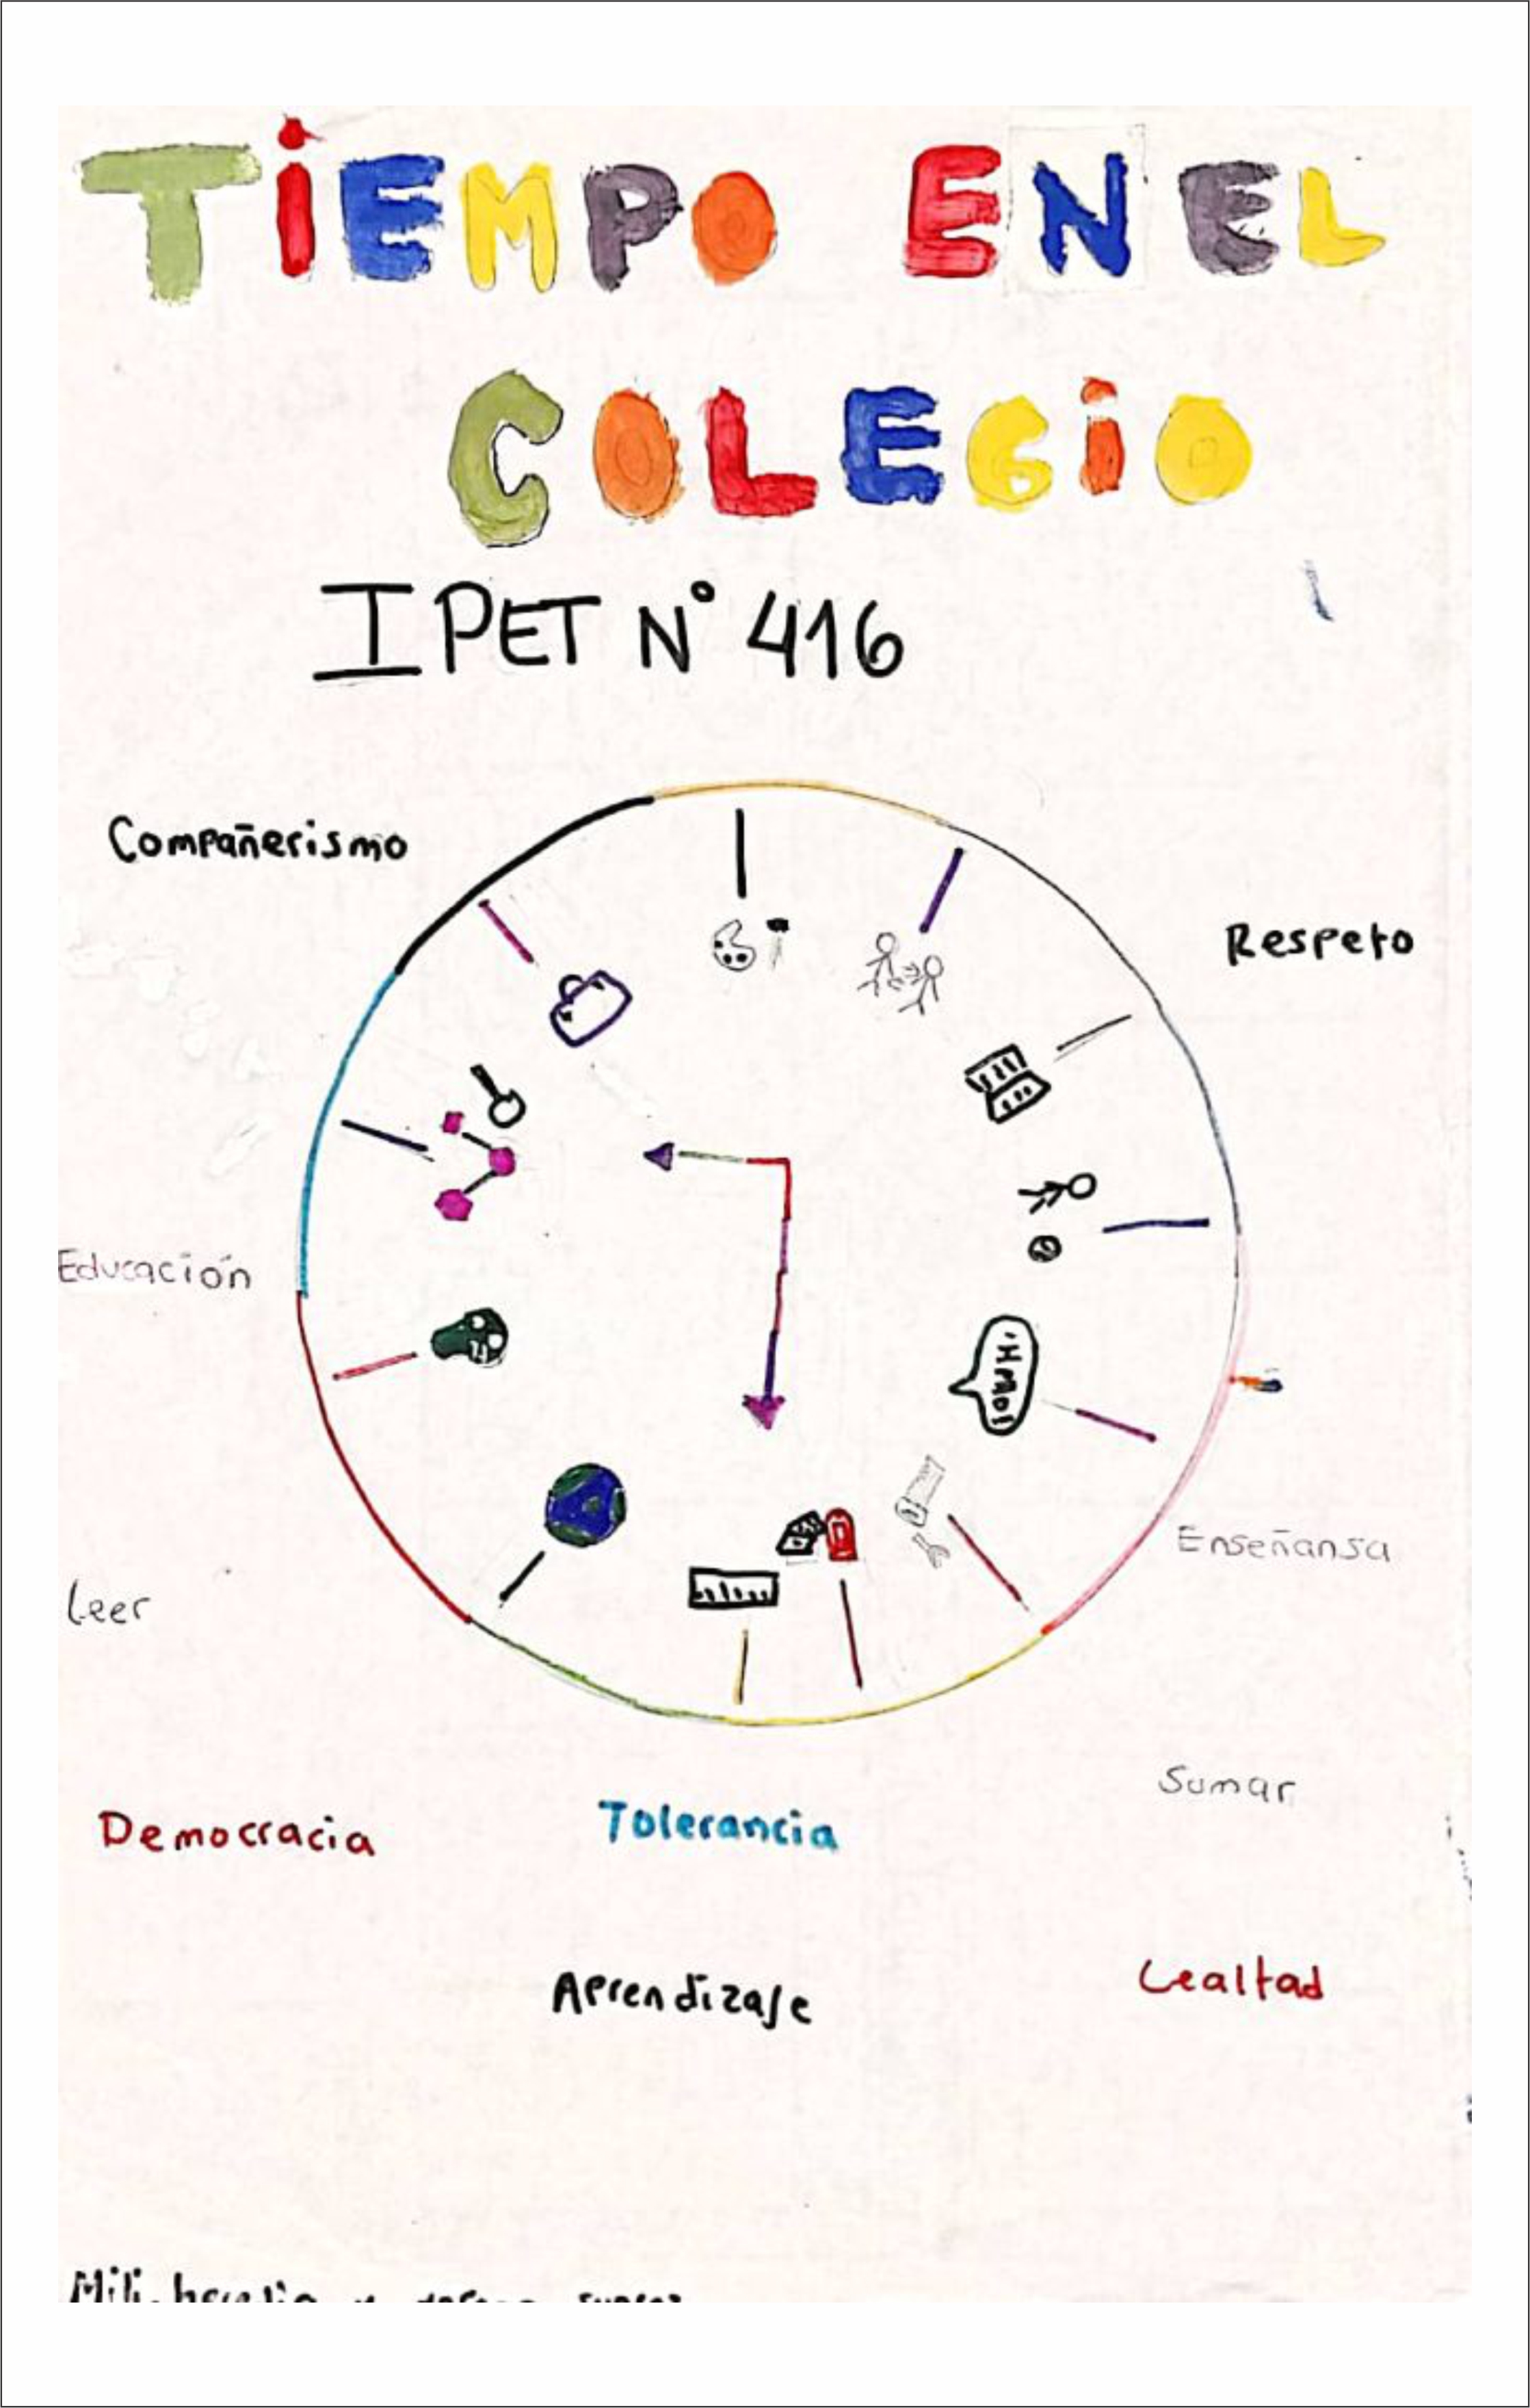 TiEMPO EN EL
COLEGiO
IPET N° 416
Compañerismo
Respeto
¡HMol
Educación
Enseñansa
Leer
Sumar
Democracia
Tolerancia
Aprendizaje
Lealtad
Mili